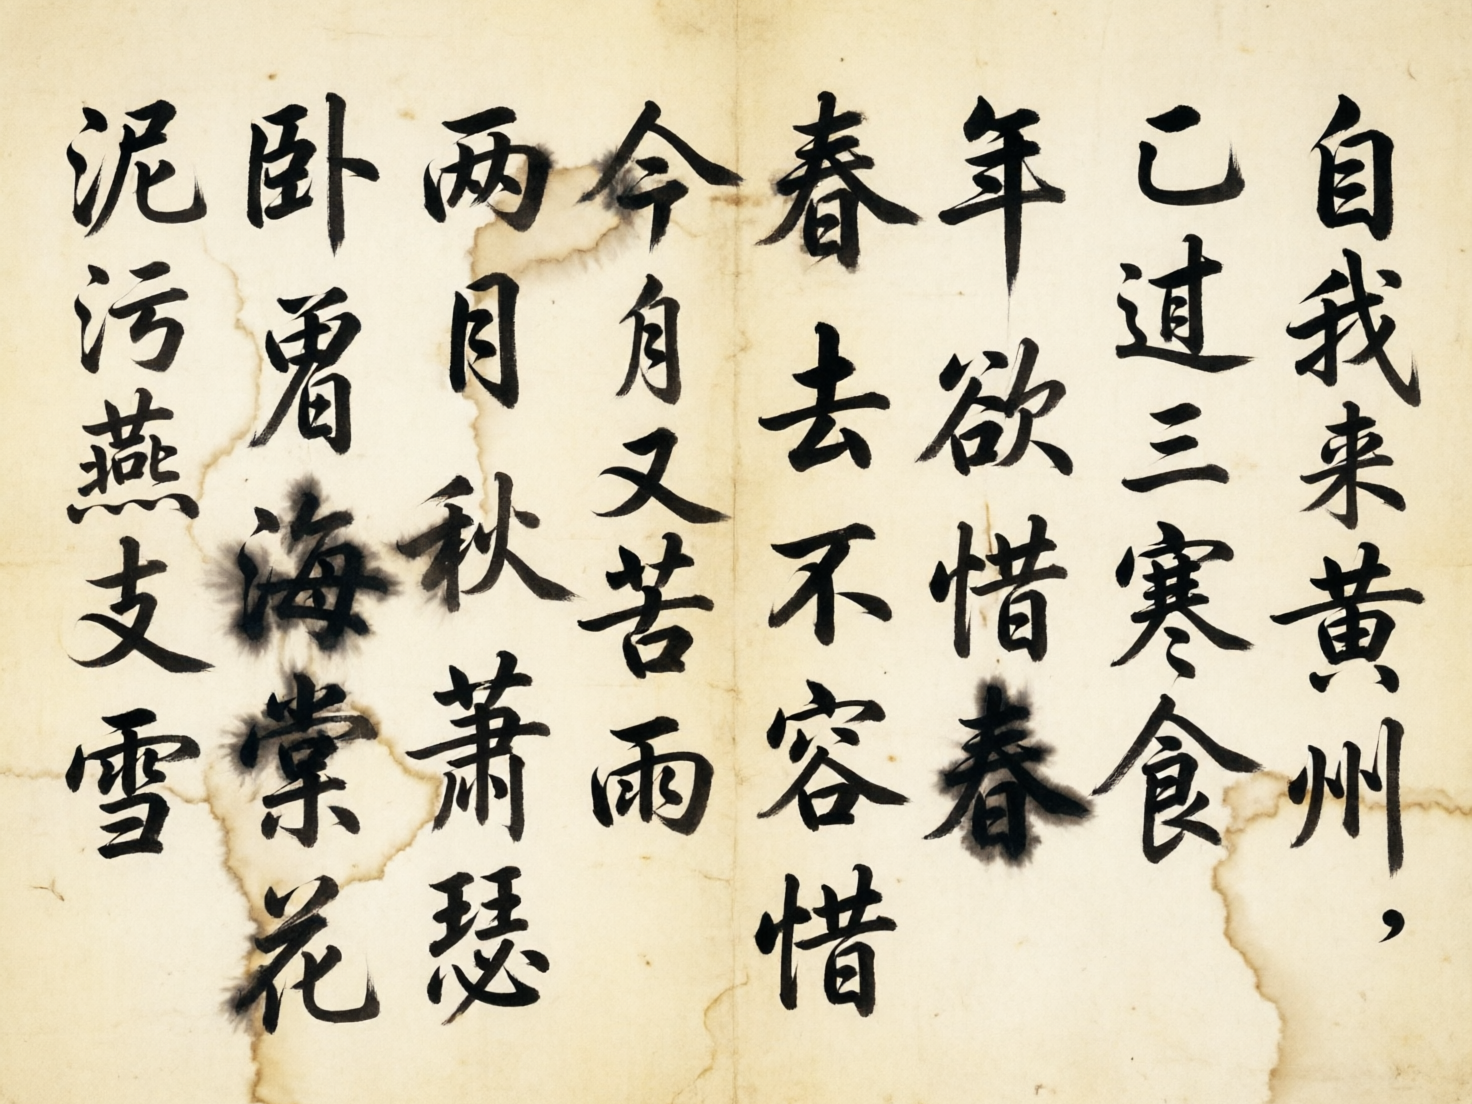 自我来黄州，
己三寒食
年欲惜春
春去不容惜
今又苦雨
两目秋蕭瑟
卧海棠花
泥污燕支雪